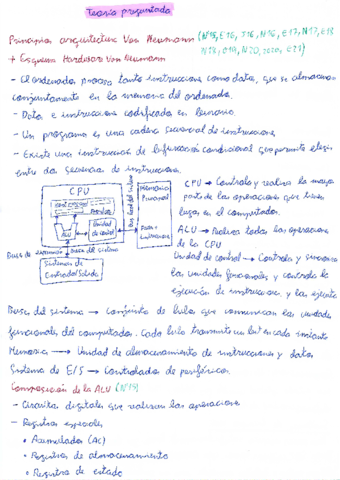 Teoría preguntada
Principios arquitectura Von Neumann (N'15, E'16, J'16, N'16, E'17, N'17, E'18
+ Esquema Hardware Von Neumann N'18, E'19, N'20, 2020, E'21)
- El ordenador procesa tanto instrucciones como datos, que se almacenan
conjuntamente en la memoria del ordenador.
- Datos e instrucciones codificados en binario
- Un programa es una cadena secuencial de instrucciones
- Existe una instrucción de bifurcación condicional que permite elegir
entre dos secuencias de instrucciones.
CPU
Unidad de control
ALU
Bus del sistema
Memoria Principal
Datos e instrucciones
Bus del sistema
Sistemas de Entrada/Salida
CPU → Controla y realiza la mayor
parte de las operaciones que tienen
lugar en el computador.
ALU → Realiza todas las operaciones
de la CPU
Unidad de control → Controla y
las unidades funcionales y controla la
ejecución de instrucciones, y las ejecuta
Buses del sistema → Conjunto de hilos que comunican las unidades
funcionales del computador. Cada hilo transmite un bit en cada instante
Memoria → Unidad de almacenamiento de instrucciones y datos
Sistema de E/S → Controladores de periféricos.
Composición de la ALU (N'19)
- Circuitos digitales que realizan las operaciones
- Registros especiales
• Acumulador (AC)
• Registros de almacenamiento
• Registro de estado